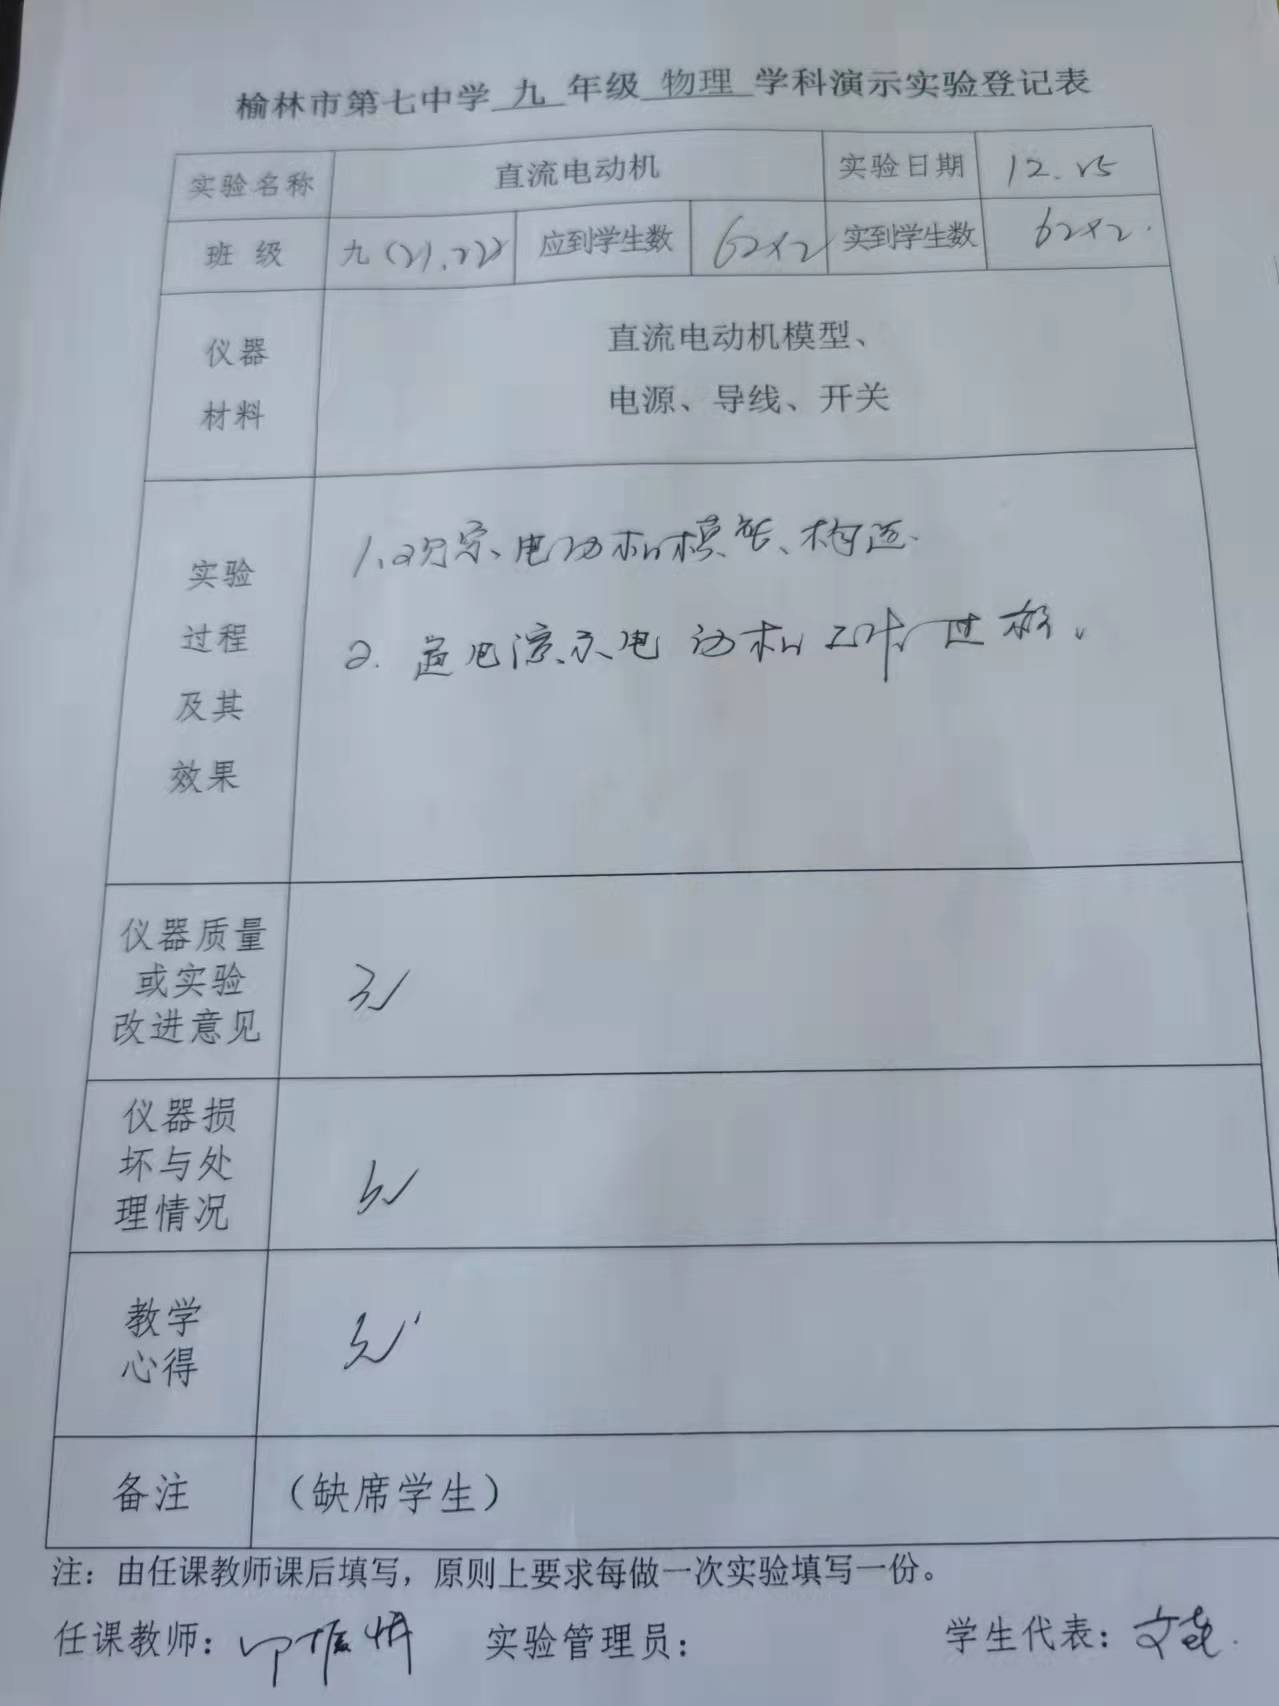 榆林市第七中学 九 年级 物理 学科演示实验登记表
实验名称 直流电动机 实验日期 12.15
班 级 九(21.22) 应到学生数 62×2 实到学生数 62×2.
仪器
材料
直流电动机模型、
电源、导线、开关
实验
过程
及其
效果
1.观察电动机模型、构造.
2. 通电演示电动机工作过程.
仪器质量
或实验
改进意见
无
仪器损
坏与处
理情况
无
教学
心得
无
备注 (缺席学生)
注：由任课教师课后填写，原则上要求每做一次实验填写一份。
任课教师： 实验管理员： 学生代表：文